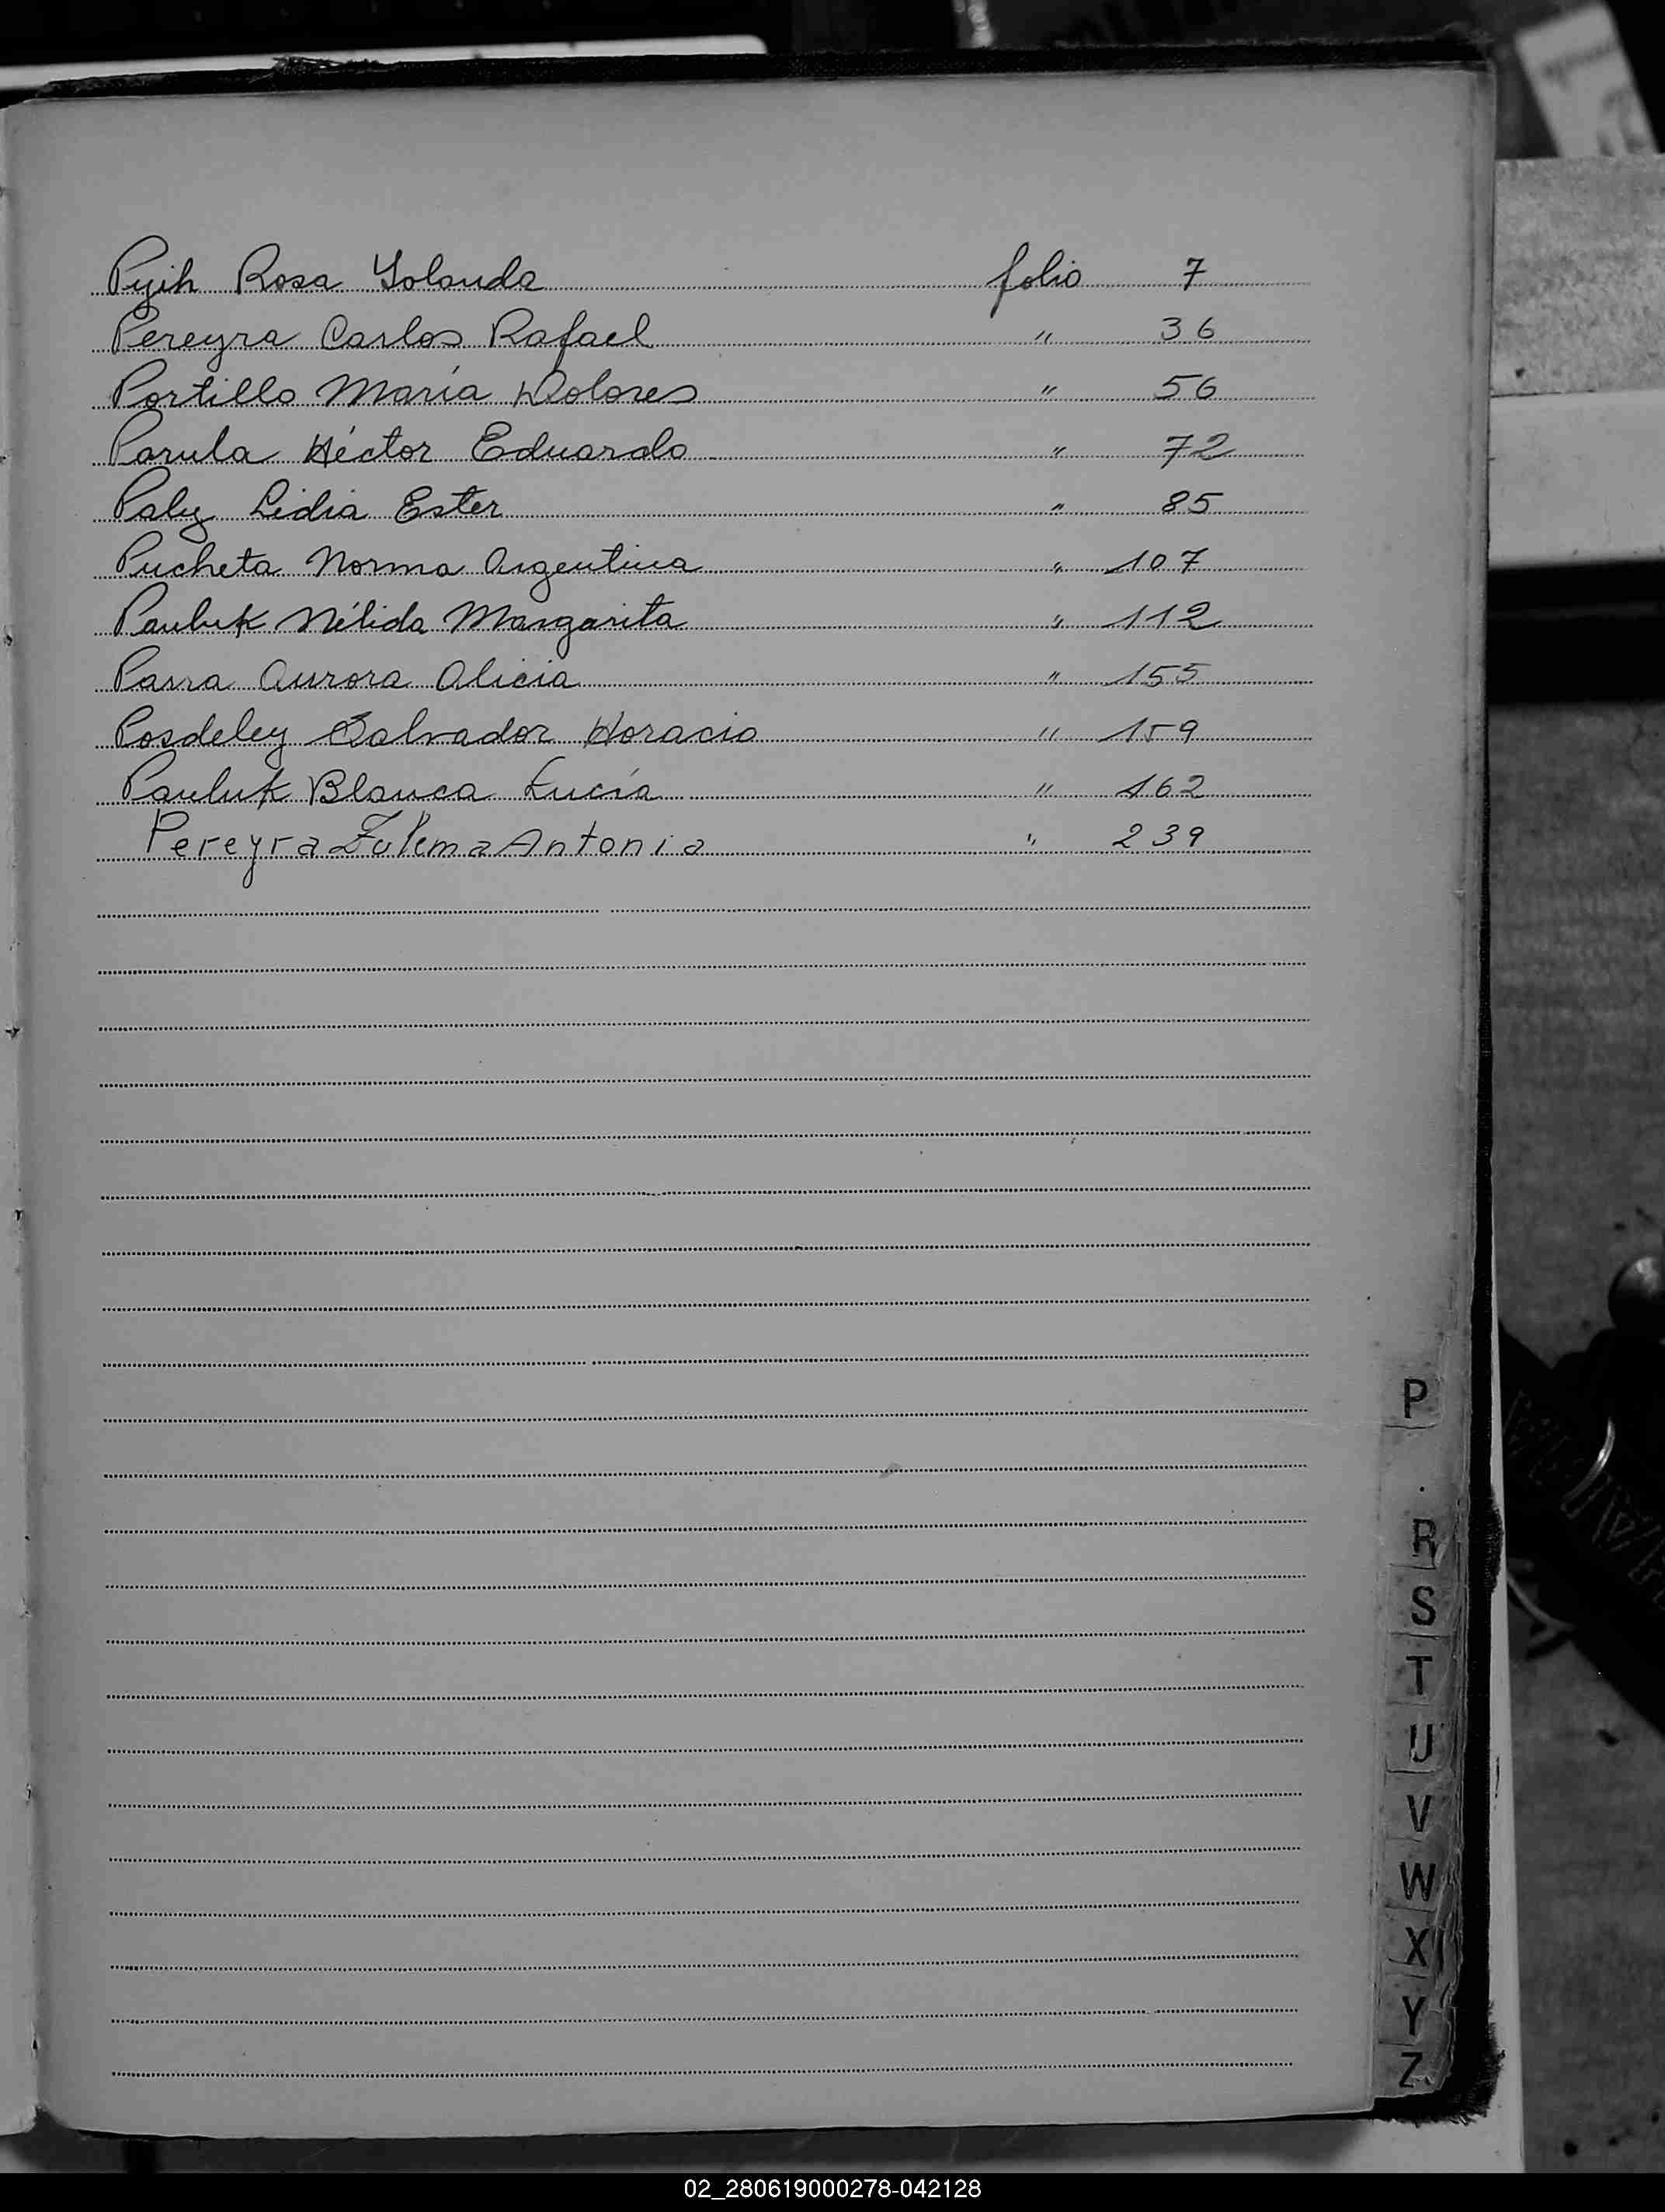 Pyih Rosa Yolanda folio 7
Pereyra Carlos Rafael " 36
Portillo María Dolores " 56
Parula Héctor Eduardo " 72
Paly Lidia Ester " 85
Pucheta Norma Argentina " 107
Pauluk Nélida Margarita " 112
Parra Aurora Alicia " 155
Posdeley Salvador Horacio " 159
Pauluk Blanca Lucía " 162
Pereyra Zulema Antonia " 239
P
R
S
T
U
V
W
X
Y
Z
02_280619000278-042128